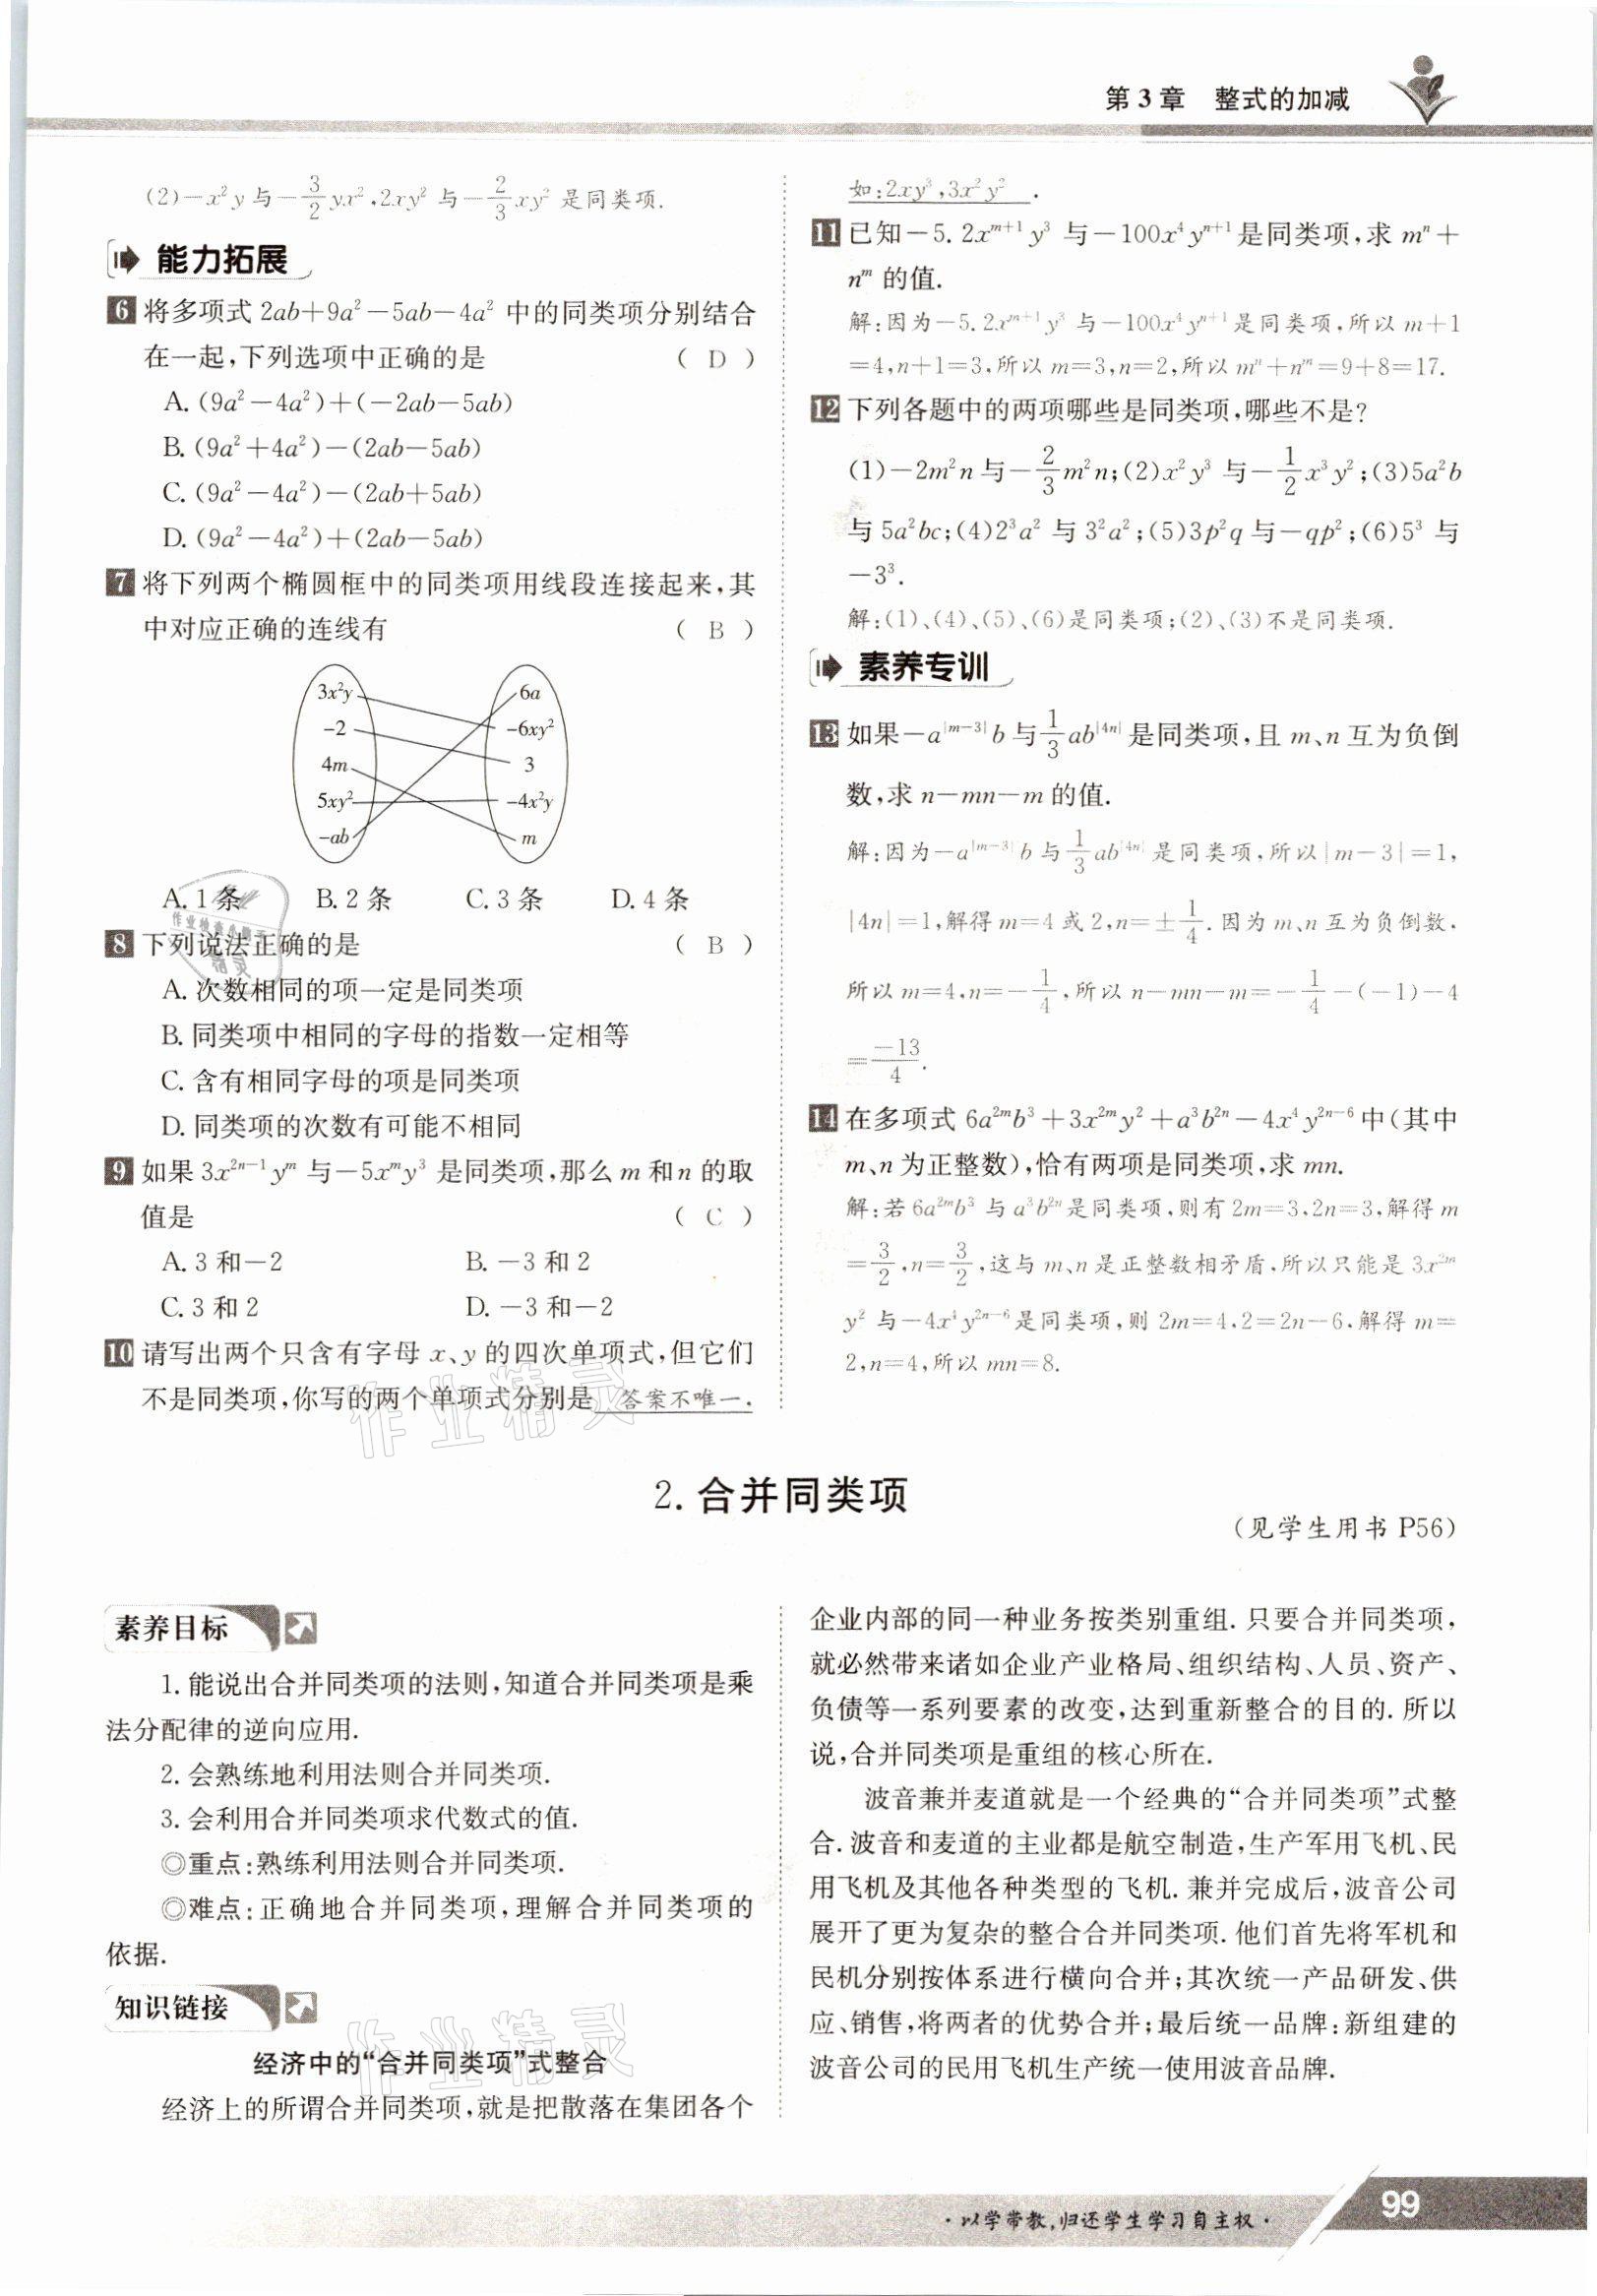 第3章 整式的加减
(2)－x²y与－3/2yx²,2xy²与－2/3xy²是同类项.
能力拓展
6 将多项式 2ab＋9a²－5ab－4a² 中的同类项分别结合
在一起,下列选项中正确的是 ( D )
A. (9a²－4a²)＋(－2ab－5ab)
B. (9a²＋4a²)－(2ab－5ab)
C. (9a²－4a²)－(2ab＋5ab)
D. (9a²－4a²)＋(2ab－5ab)
7 将下列两个椭圆框中的同类项用线段连接起来,其
中对应正确的连线有 ( B )
3x²y 6a
－2 －6xy²
4m 3
5xy² －4x²y
－ab m
A. 1条 B. 2条 C. 3条 D. 4条
8 下列说法正确的是 ( B )
A. 次数相同的项一定是同类项
B. 同类项中相同的字母的指数一定相等
C. 含有相同字母的项是同类项
D. 同类项的次数有可能不相同
9 如果 3x²ⁿ⁻¹yᵐ 与－5xᵐy³ 是同类项,那么 m 和 n 的取
值是 ( C )
A. 3和－2 B. －3和2
C. 3和2 D. －3和－2
10 请写出两个只含有字母 x、y 的四次单项式,但它们
不是同类项,你写的两个单项式分别是 答案不唯一.
如:2xy³,3x²y² .
11 已知－5.2xᵐ⁺¹y³ 与－100x⁴yⁿ⁺¹是同类项,求 mⁿ＋
nᵐ 的值.
解:因为－5.2xᵐ⁺¹y³ 与－100x⁴yⁿ⁺¹是同类项,所以 m＋1
＝4,n＋1＝3,所以 m＝3,n＝2,所以 mⁿ＋nᵐ＝9＋8＝17.
12 下列各题中的两项哪些是同类项,哪些不是?
(1)－2m²n与－2/3m²n;(2)x²y³ 与－1/2x³y²;(3)5a²b
与 5a²bc;(4)2³a² 与 3²a²;(5)3p²q与－qp²;(6)5³ 与
－3³.
解:(1)、(4)、(5)、(6)是同类项;(2)、(3)不是同类项.
素养专训
13 如果－a^|m－3|b与1/3ab^|4n|是同类项,且 m、n 互为负倒
数,求 n－mn－m 的值.
解:因为－a^|m－3|b与1/3ab^|4n|是同类项,所以|m－3|＝1,
|4n|＝1,解得 m＝4 或 2,n＝±1/4.因为 m、n 互为负倒数.
所以 m＝4,n＝－1/4,所以 n－mn－m＝－1/4－(－1)－4
＝－13/4.
14 在多项式 6a²ᵐb³＋3x²ᵐy²＋a³b²ⁿ－4x⁴y²ⁿ⁻⁶中(其中
m、n 为正整数),恰有两项是同类项,求 mn.
解:若 6a²ᵐb³ 与 a³b²ⁿ是同类项,则有 2m＝3,2n＝3,解得 m
＝3/2,n＝3/2,这与 m、n 是正整数相矛盾,所以只能是 3x²ᵐ
y² 与－4x⁴y²ⁿ⁻⁶是同类项,则 2m＝4,2＝2n－6,解得 m＝
2,n＝4,所以 mn＝8.
2. 合并同类项
(见学生用书 P56)
素养目标
1. 能说出合并同类项的法则,知道合并同类项是乘
法分配律的逆向应用.
2. 会熟练地利用法则合并同类项.
3. 会利用合并同类项求代数式的值.
◎重点:熟练利用法则合并同类项.
◎难点:正确地合并同类项,理解合并同类项的
依据.
知识链接
经济中的“合并同类项”式整合
经济上的所谓合并同类项,就是把散落在集团各个
企业内部的同一种业务按类别重组. 只要合并同类项,
就必然带来诸如企业产业格局、组织结构、人员、资产、
负债等一系列要素的改变,达到重新整合的目的. 所以
说,合并同类项是重组的核心所在.
波音兼并麦道就是一个经典的“合并同类项”式整
合. 波音和麦道的主业都是航空制造,生产军用飞机、民
用飞机及其他各种类型的飞机. 兼并完成后,波音公司
展开了更为复杂的整合合并同类项. 他们首先将军机和
民机分别按体系进行横向合并;其次统一产品研发、供
应、销售,将两者的优势合并;最后统一品牌:新组建的
波音公司的民用飞机生产统一使用波音品牌.
作业精灵
作业精灵
·以学带教,归还学生学习自主权·
99